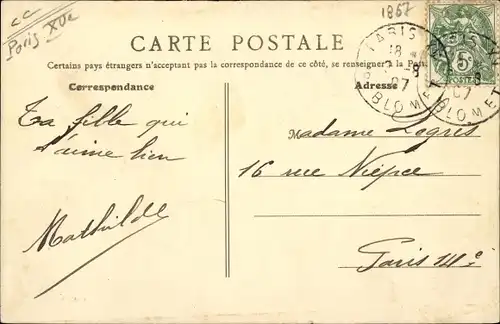 CC
Paris XVe
1867
CARTE POSTALE
Certains pays étrangers n'acceptant pas la correspondance de ce côté, se renseigner à la Poste
Correspondance
Adresse
PARIS
18
07
BLOMET
5c
BLOMET
07
Ta fille qui
t'aime bien
Mathilde
Madame Legris
16 rue Niépce
Paris 14e